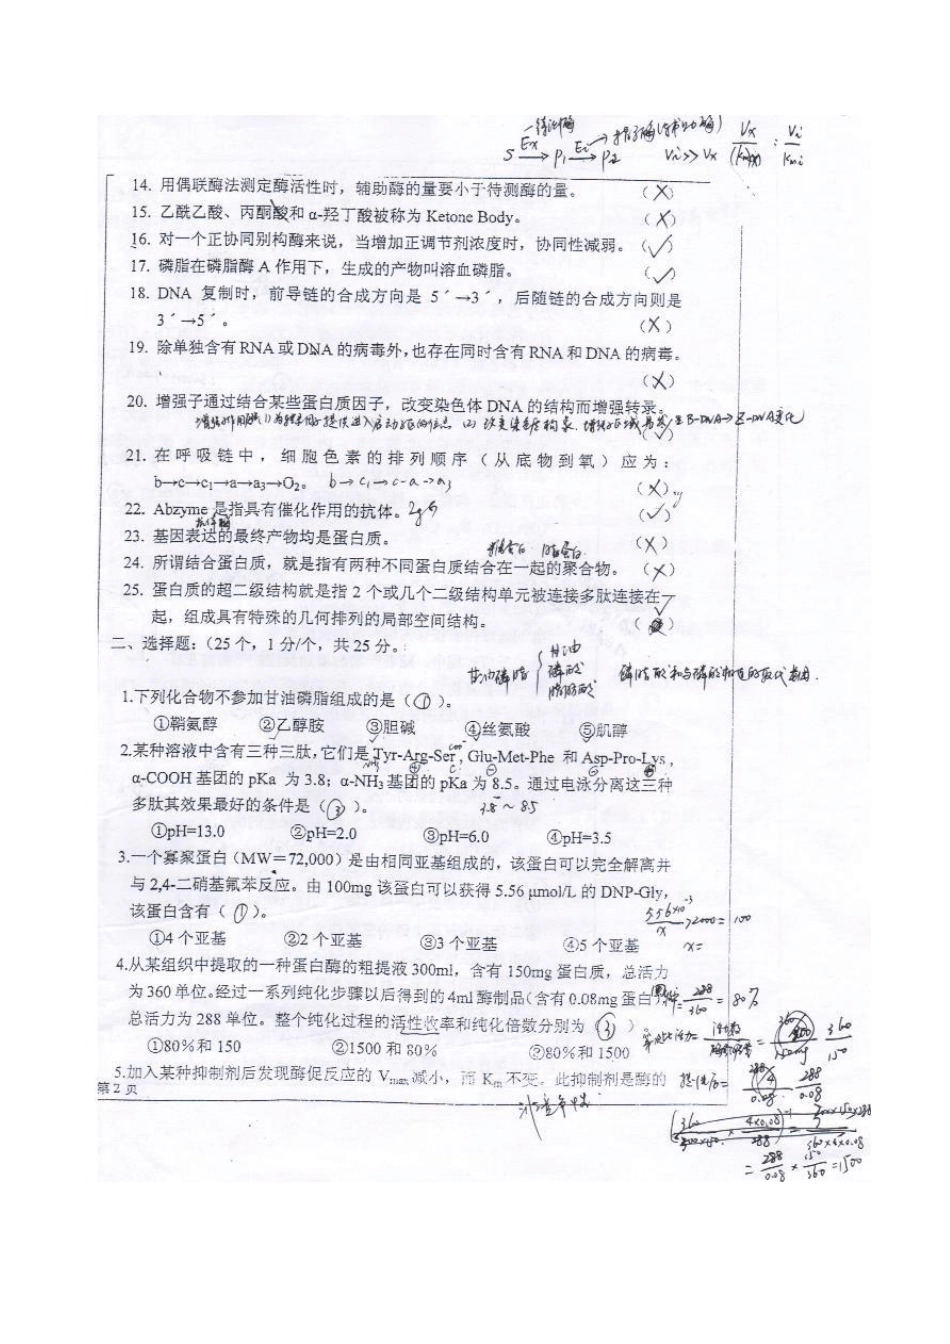 S Ex→ P₁ Ei→ P₂ Vi>>Vx Vx/(Kmx) : Vi/Kmi
14. 用偶联酶法测定酶活性时，辅助酶的量要小于待测酶的量。 (X)
15. 乙酰乙酸、丙酮酸和 α-羟丁酸被称为 Ketone Body。 (X)
16. 对一个正协同别构酶来说，当增加正调节剂浓度时，协同性减弱。 (✓)
17. 磷脂在磷脂酶 A 作用下，生成的产物叫溶血磷脂。 (✓)
18. DNA 复制时，前导链的合成方向是 5´→3´，后随链的合成方向则是
3´→5´。 (X)
19. 除单独含有 RNA 或 DNA 的病毒外，也存在同时含有 RNA 和 DNA 的病毒。
(X)
20. 增强子通过结合某些蛋白质因子，改变染色体 DNA 的结构而增强转录。
(✓)
21. 在呼吸链中，细胞色素的排列顺序（从底物到氧）应为：
b→c→c₁→a→a₃→O₂。 b→c₁→c→a→a₃ (X)
22. Abzyme 是指具有催化作用的抗体。 (✓)
抗体酶
23. 基因表达的最终产物均是蛋白质。 (X)
糖蛋白 脂蛋白
24. 所谓结合蛋白质，就是指有两种不同蛋白质结合在一起的聚合物。 (X)
25. 蛋白质的超二级结构就是指 2 个或几个二级结构单元被连接多肽连接在
起，组成具有特殊的几何排列的局部空间结构。
二、选择题：（25 个，1 分/个，共 25 分。
甘油磷脂 { 甘油 磷酸 脂肪酸
1.下列化合物不参加甘油磷脂组成的是（①）。
①鞘氨醇 ②乙醇胺 ③胆碱 ④丝氨酸 ⑤肌醇
2.某种溶液中含有三种三肽，它们是 Tyr-Arg-Ser, Glu-Met-Phe 和 Asp-Pro-Lys，
α-COOH 基团的 pKa 为 3.8；α-NH₃ 基团的 pKa 为 8.5。通过电泳分离这三种
多肽其效果最好的条件是（③）。 3.8～8.5
①pH=13.0 ②pH=2.0 ③pH=6.0 ④pH=3.5
3.一个寡聚蛋白（MW＝72,000）是由相同亚基组成的，该蛋白可以完全解离并
与 2,4-二硝基氟苯反应。由 100mg 该蛋白可以获得 5.56 μmol/L 的 DNP-Gly，
该蛋白含有（①）。
①4 个亚基 ②2 个亚基 ③3 个亚基 ④5 个亚基 x=
4.从某组织中提取的一种蛋白酶的粗提液 300ml，含有 150mg 蛋白质，总活力
为 360 单位。经过一系列纯化步骤以后得到的 4ml 酶制品（含有 0.08mg 蛋白 288/360 = 80%
总活力为 288 单位。整个纯化过程的活性收率和纯化倍数分别为（③）。
①80%和 150 ②1500 和 80% ③80%和 1500 360/150
5.加入某种抑制剂后发现酶促反应的 Vmax 减小，而 Km 不变。此抑制剂是酶的 288/0.08
第 2 页
非竞争性
= 288/0.08 × 150/360 = 1500